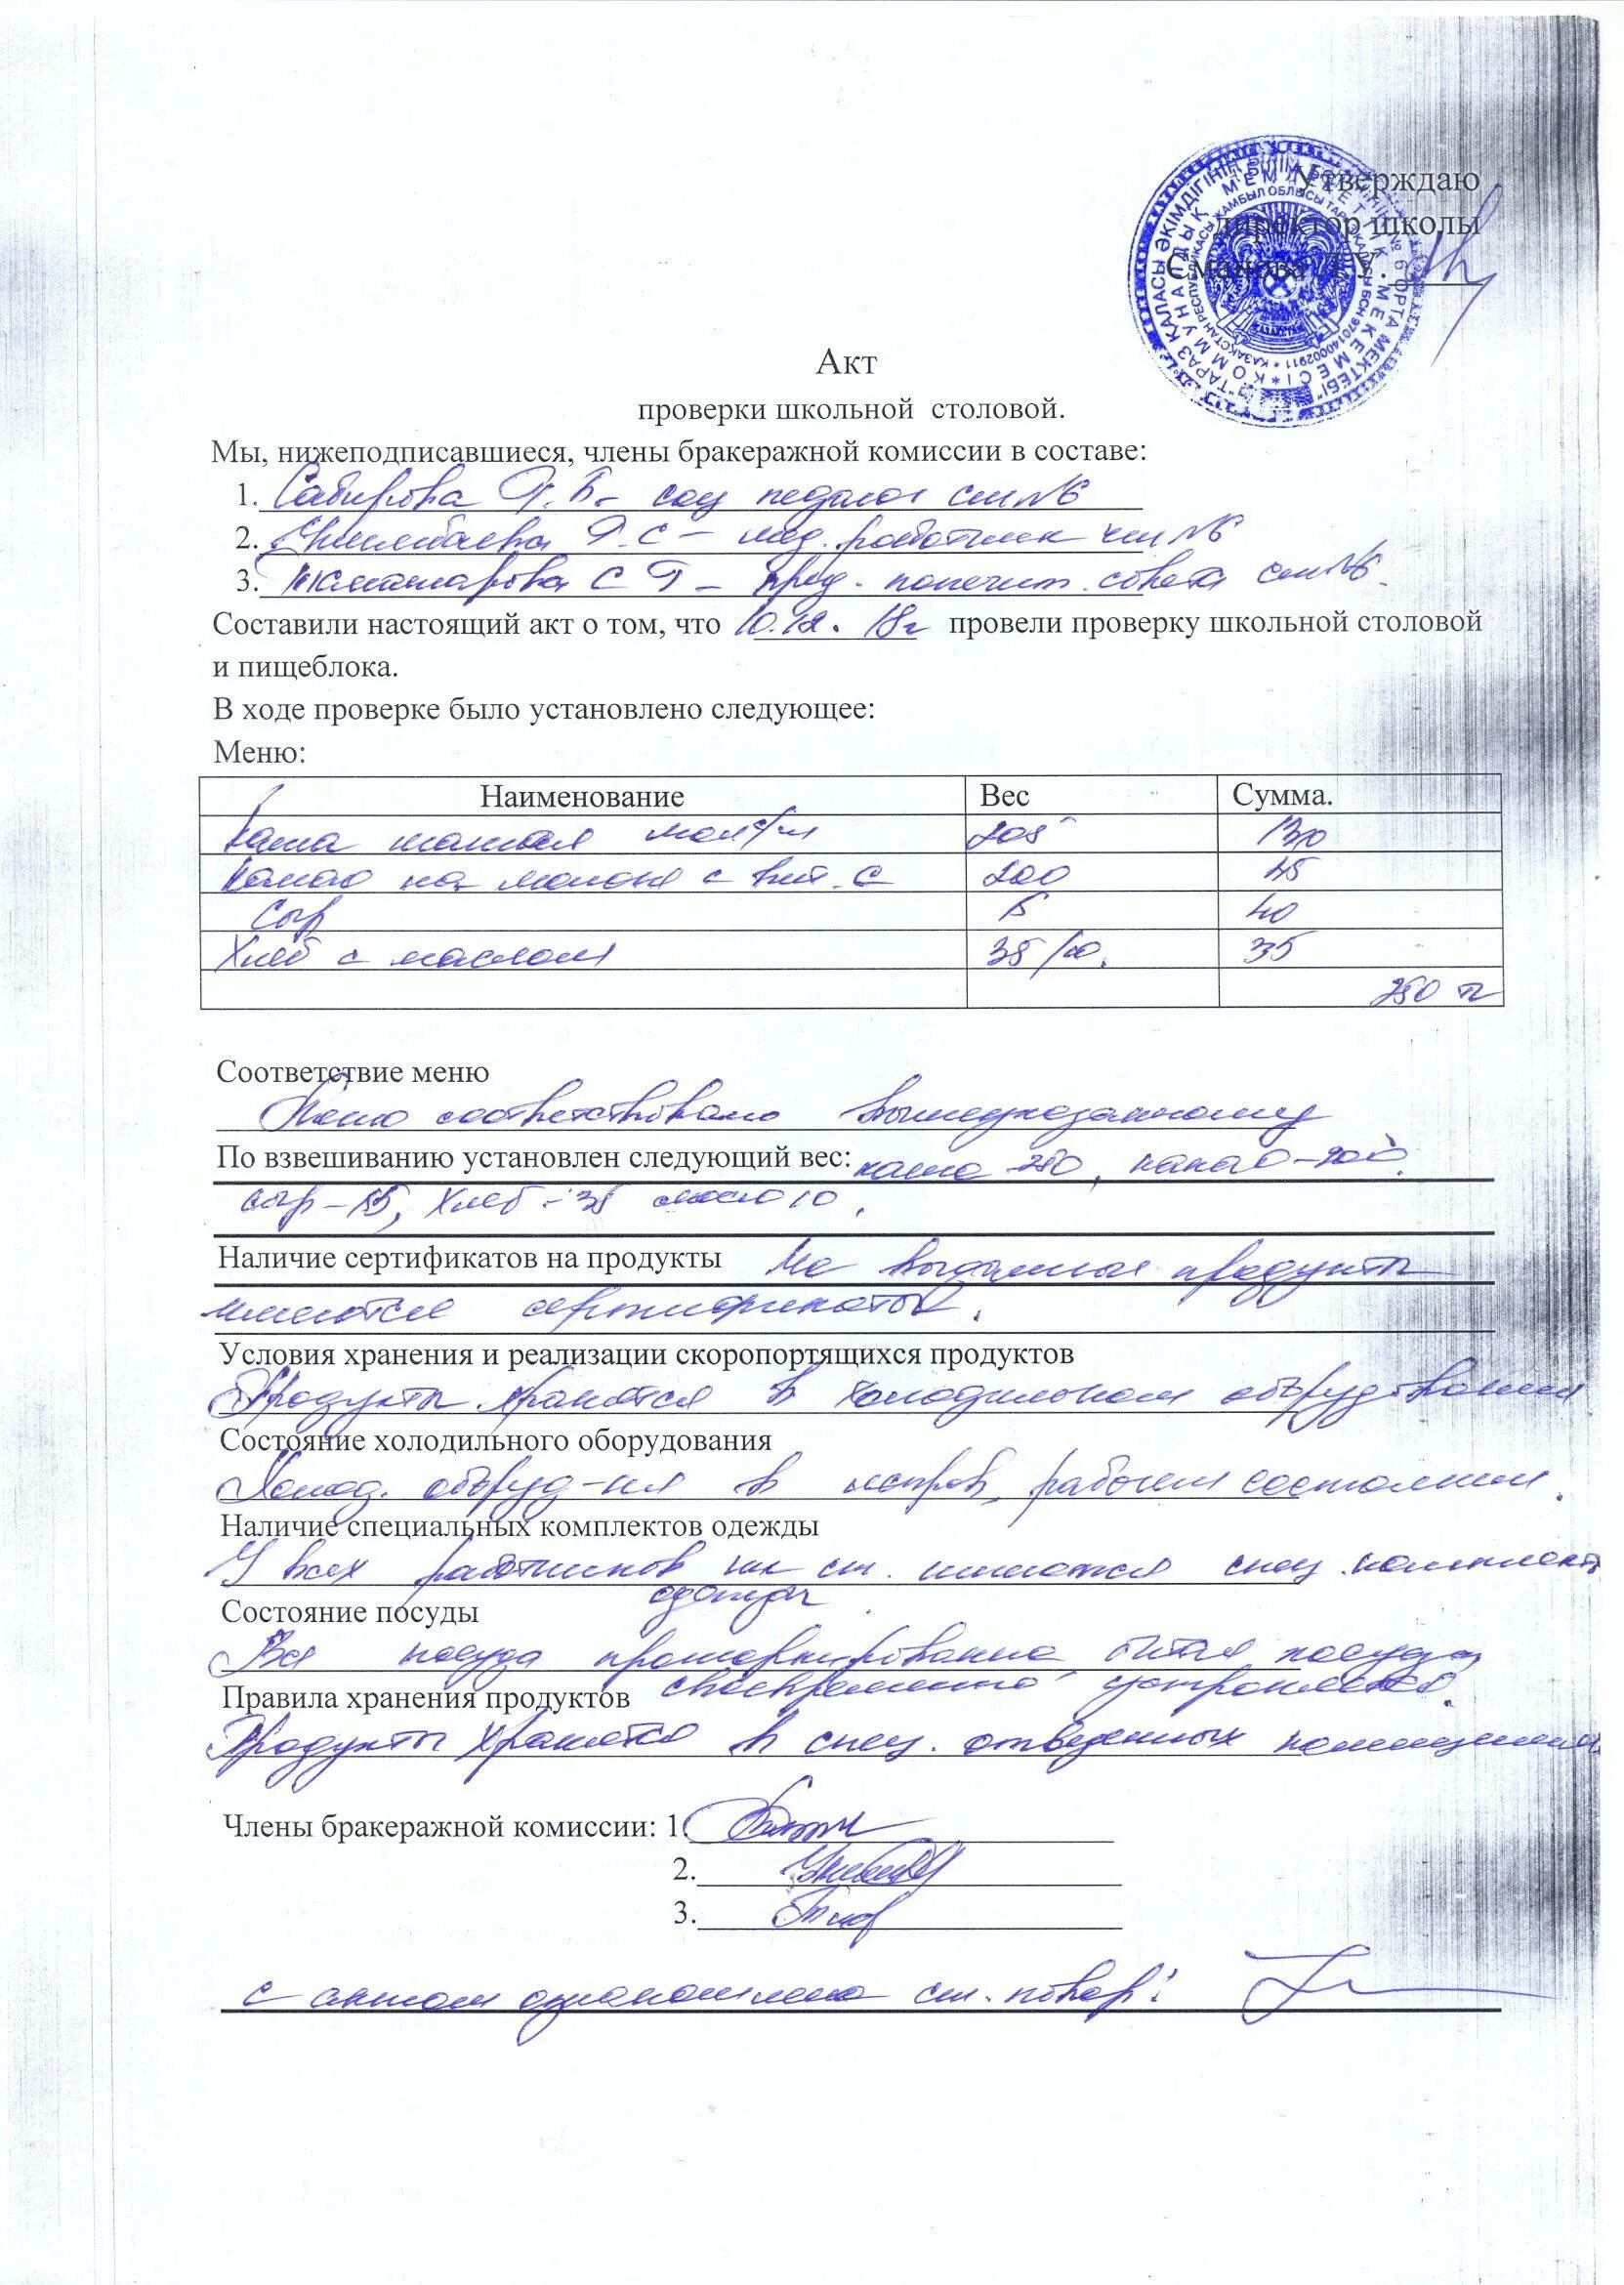 Утверждаю
директор школы
Сманова Л.У.
"ТАРАЗ ҚАЛАСЫ ӘКІМДІГІНІҢ БІЛІМ БӨЛІМІНІҢ № 6 ОРТА МЕКТЕБІ"
КОММУНАЛДЫҚ МЕМЛЕКЕТТІК МЕКЕМЕСІ
ҚАЗАҚСТАН РЕСПУБЛИКАСЫ ЖАМБЫЛ ОБЛЫСЫ ТАРАЗ ҚАЛАСЫ БСН 970140002911
ҚАЗАҚСТАН
Акт
проверки школьной столовой.
Мы, нижеподписавшиеся, члены бракеражной комиссии в составе:
1. Сабирова Г. Б. - соц педагог сш №6
2. Г.С - мед. работник сш №6
3. С Г - пред. попечит. совета сш №6.
Составили настоящий акт о том, что 10.12. 18г провели проверку школьной столовой
и пищеблока.
В ходе проверке было установлено следующее:
Меню:
Наименование Вес Сумма.
Каша 205 130
Какао на молоке с вит. С 200 45
Сыр 15 40
Хлеб с маслом 35/10. 35
250 тг
Соответствие меню
Меню соответствовало вышеуказанному
По взвешиванию установлен следующий вес: каша - 250, какао - 200,
сыр - 15, хлеб - 35 масло 10.
Наличие сертификатов на продукты На выданные продукты
имеются сертификаты.
Условия хранения и реализации скоропортящихся продуктов
Продукты хранятся в холодильном оборудовании
Состояние холодильного оборудования
Холод. оборуд-ия в исправ, рабочем состоянии.
Наличие специальных комплектов одежды
У всех работников шк ст. имеются спец. комплекты
одежды
Состояние посуды
Вся посуда промаркирована, битая посуда
своевременно устраняется.
Правила хранения продуктов
Продукты хранятся в спец. отведенных помещениях
Члены бракеражной комиссии: 1.
2.
3.
с актом ознакомлена ст. повар: